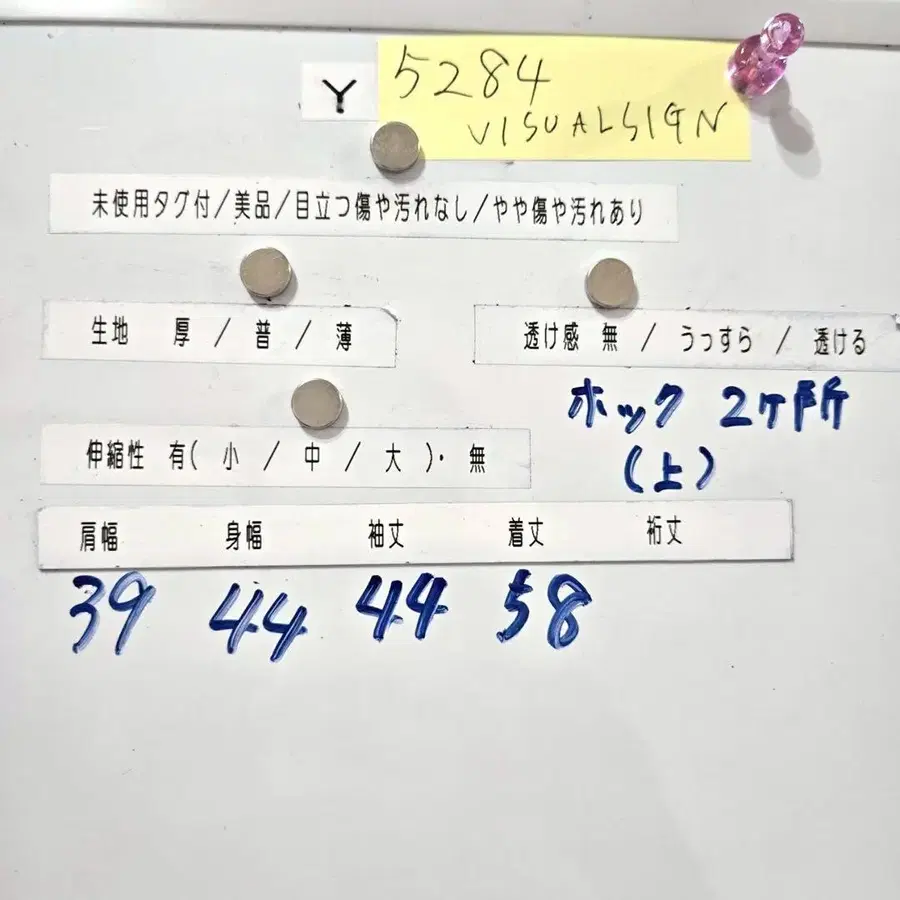 Y
5284
VISUALSIGN
未使用タグ付/美品/目立つ傷や汚れなし/やや傷や汚れあり
生地 厚 / 普 / 薄
透け感 無 / うっすら / 透ける
ホック 2ヶ所
(上)
伸縮性 有( 小 / 中 / 大 )・ 無
肩幅 身幅 袖丈 着丈 裄丈
39 44 44 58